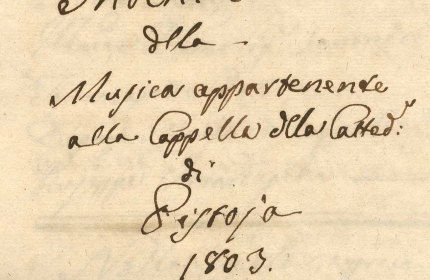 della
Musica appartenente
alla Cappella della Catted:
di
Pistoja
1803.